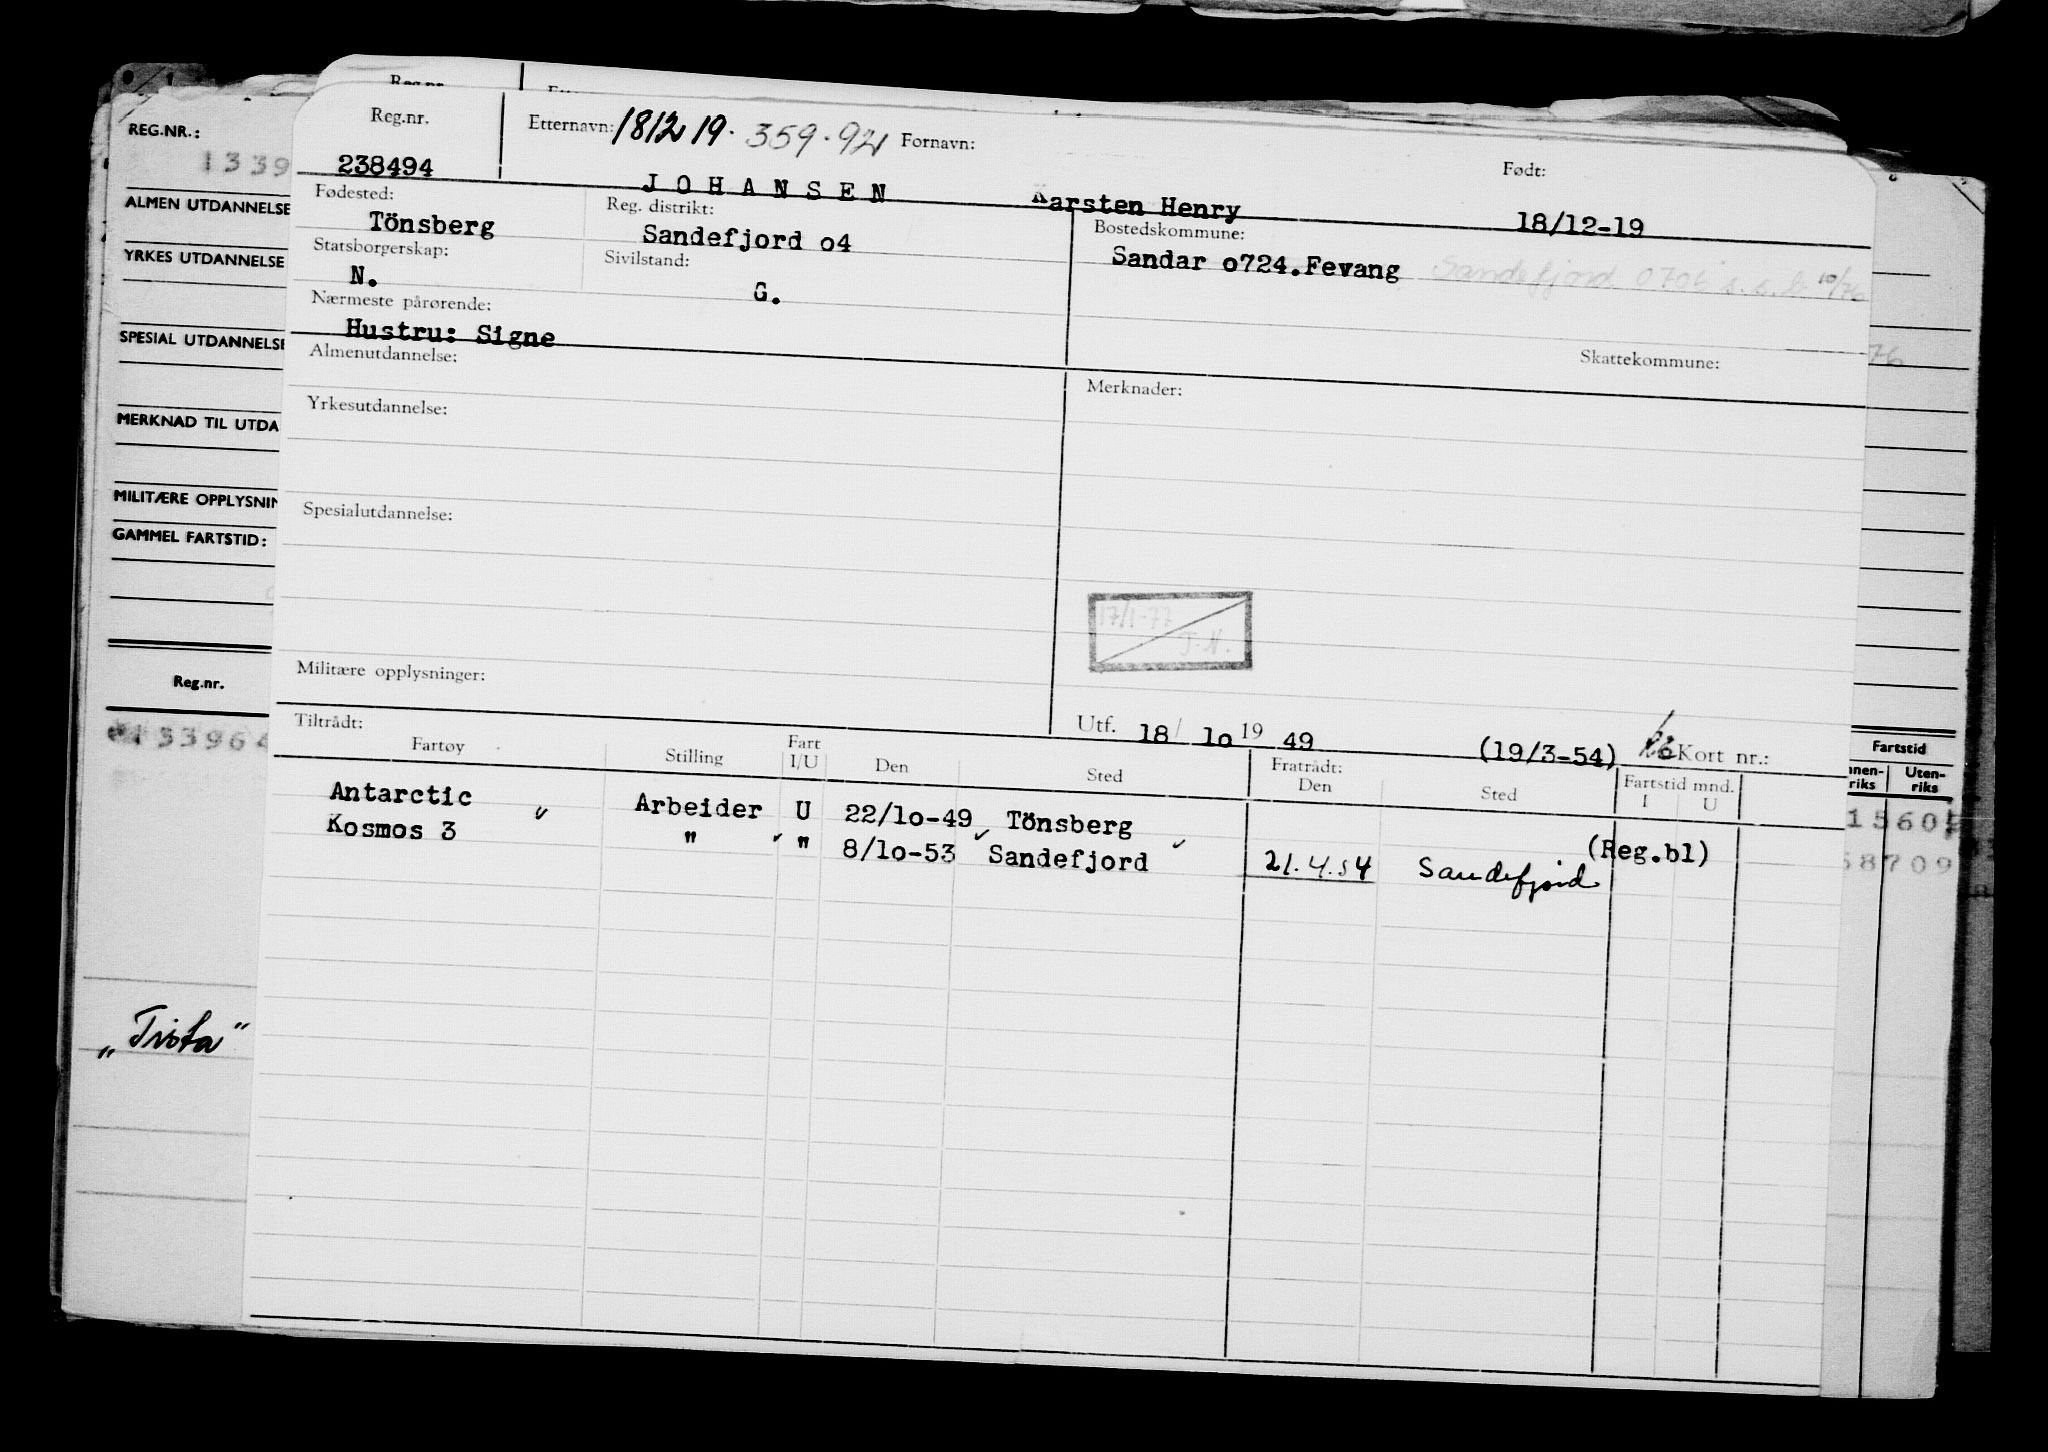 Reg.nr.
REG.NR.:
1339
ALMEN UTDANNELSE
YRKES UTDANNELSE
SPESIAL UTDANNELSE
MERKNAD TIL UTDA
MILITÆRE OPPLYSNIN
GAMMEL FARTSTID:
Reg.nr.
133964
„Trista"
Reg.nr. Etternavn: 181219. 359.92 Fornavn: Født:
238494 JOHANSEN Karsten Henry 18/12-19
Fødested: Reg. distrikt: Bostedskommune:
Tönsberg Sandefjord o4 Sandar o724.Fevang Sandefjord 0706 s.s.b. 10/76
Statsborgerskap: Sivilstand:
N. G.
Nærmeste pårørende:
Hustru: Signe
Skattekommune:
76
Almenutdannelse: Merknader:
Yrkesutdannelse:
Spesialutdannelse:
17/1-77
J.N.
Militære opplysninger:
Utf. 18/ lo 19 49 (19/3-54) Kort nr.:
Tiltrådt: Fratrådt:
Fartøy Stilling Fart I/U Den Sted Den Sted Fartstid mnd. I U
Antarctic Arbeider U 22/lo-49 Tönsberg (Reg.bl)
Kosmos 3 " " 8/lo-53 Sandefjord 21.4.54 Sandefjord
Fartstid
nnen-riks Uten-riks
1560
68709